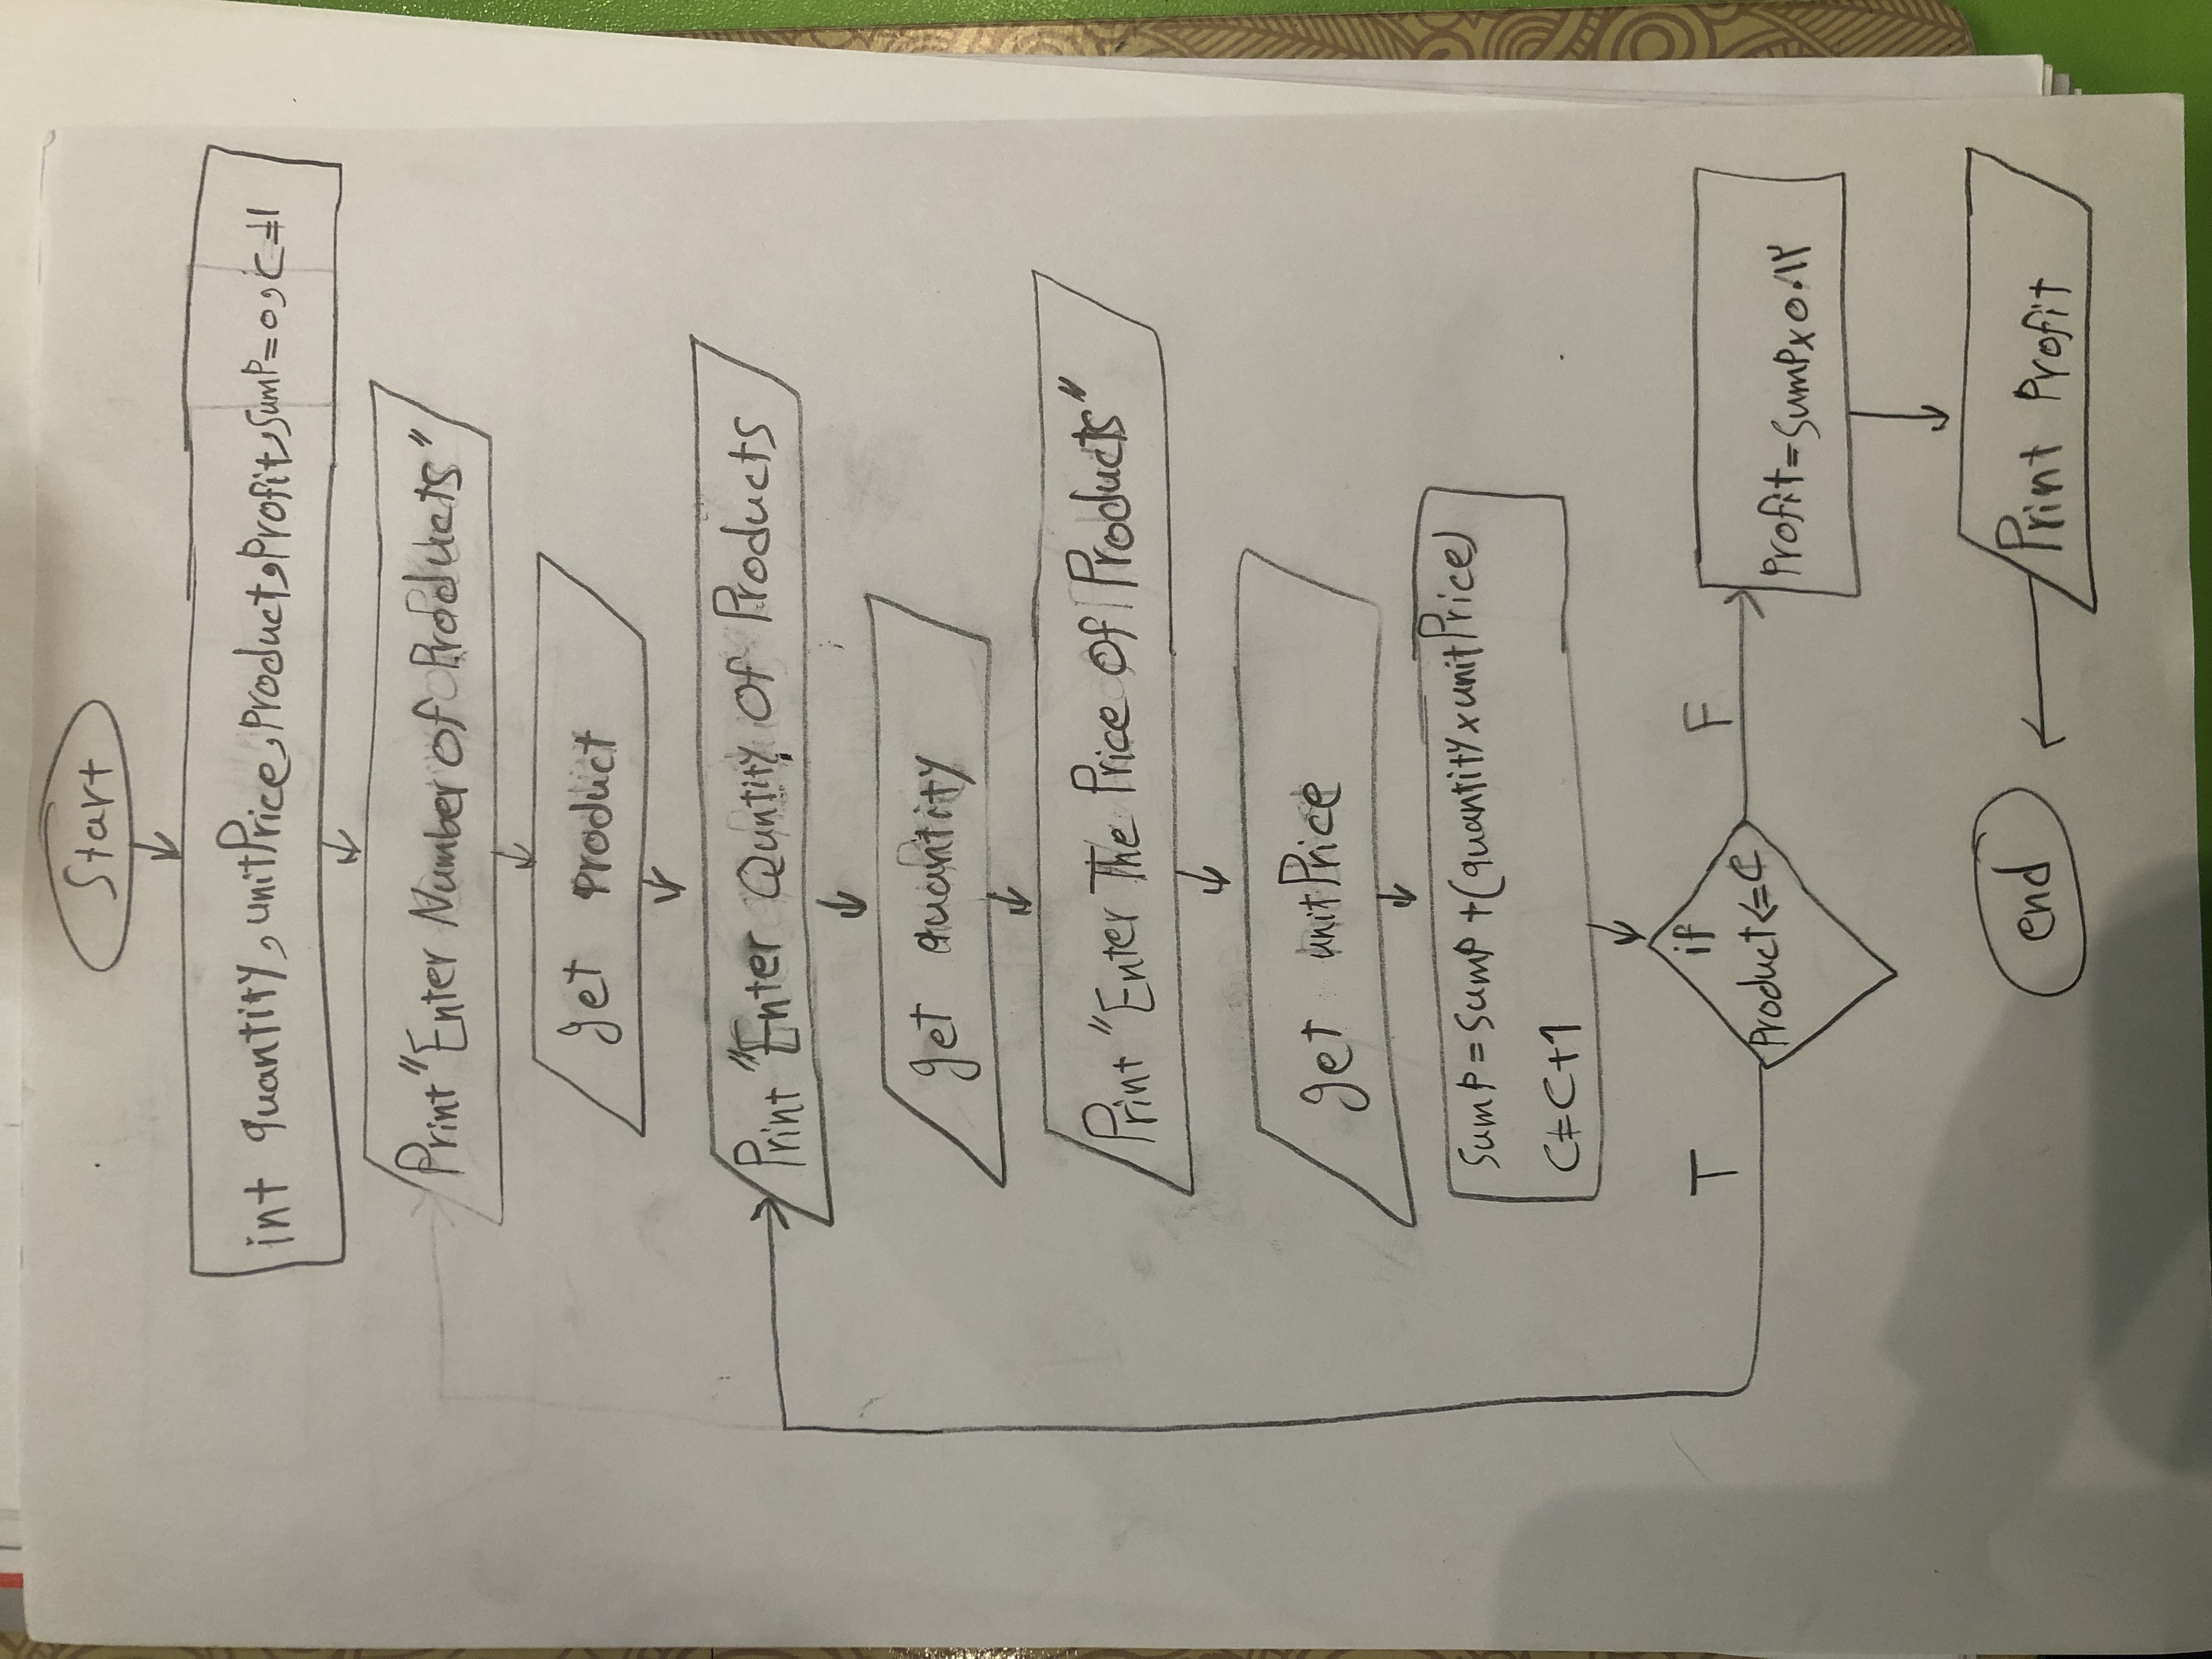 Start
int quantity, unitPrice, Product, Profit, SumP=0, C=1
Print "Enter Number of Products"
get Product
Print "Enter Quntity Of Products
get quantity
Print "Enter The Price Of Products"
get unitPrice
SumP = SumP + (quantity x unitPrice)
C=C+1
if
Product <= C
T
F
Profit = SumP x 0.۱۲
Print Profit
end